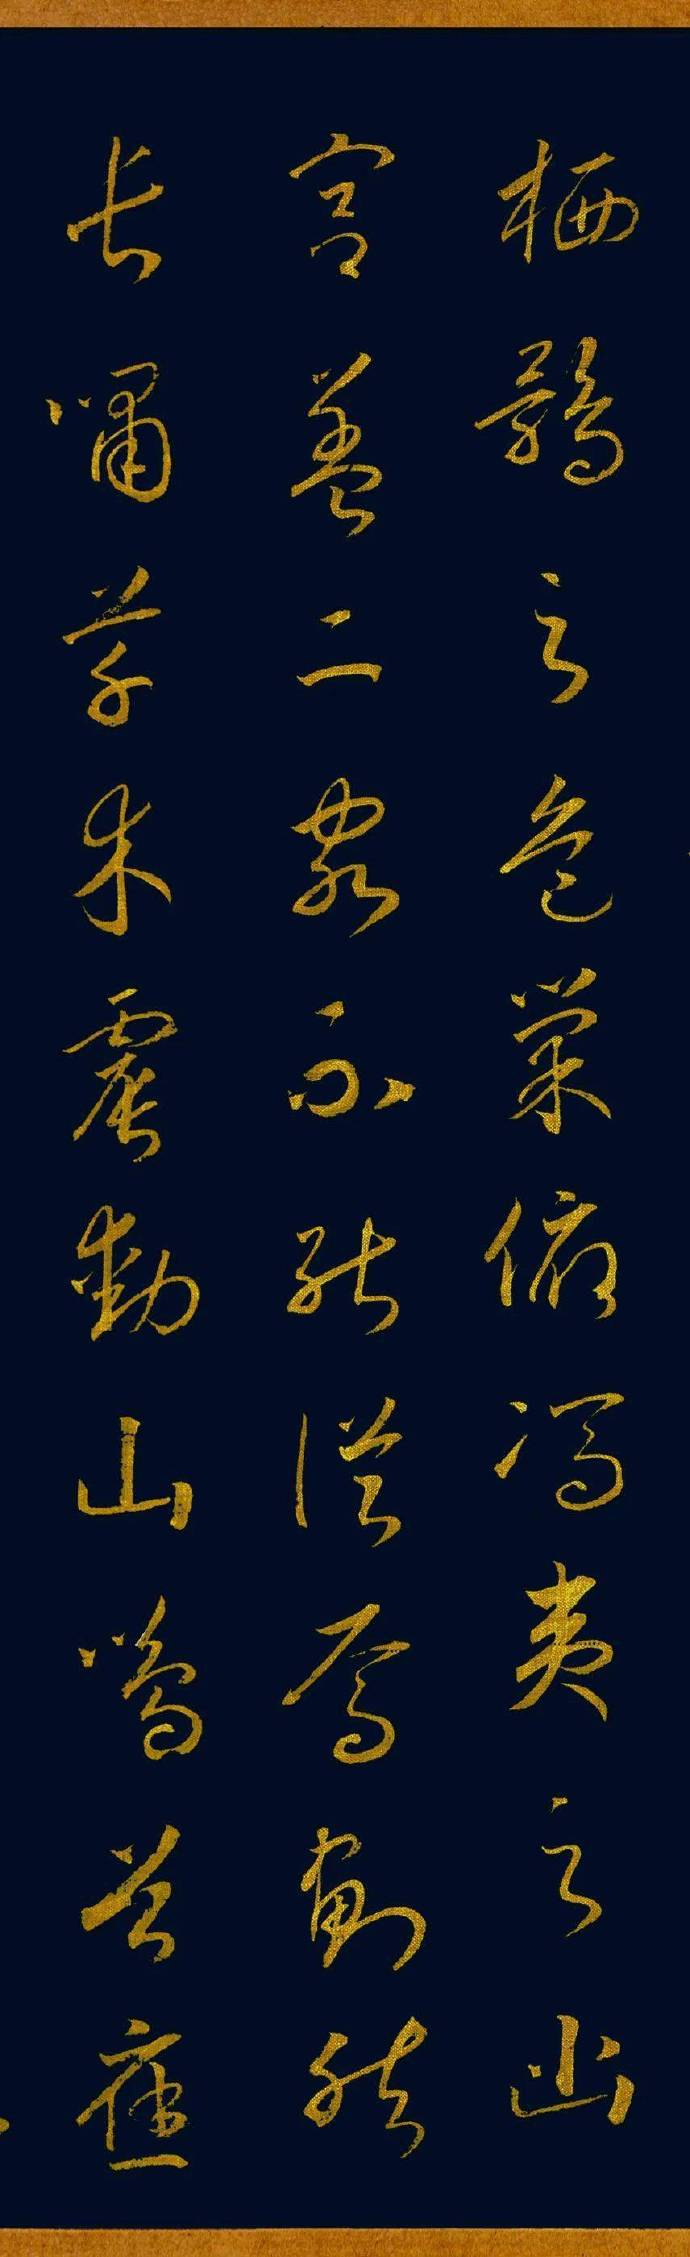 栖鹘之危巢俯冯夷之幽
宫盖二客不能从焉划然
长啸草木震动山鸣谷应